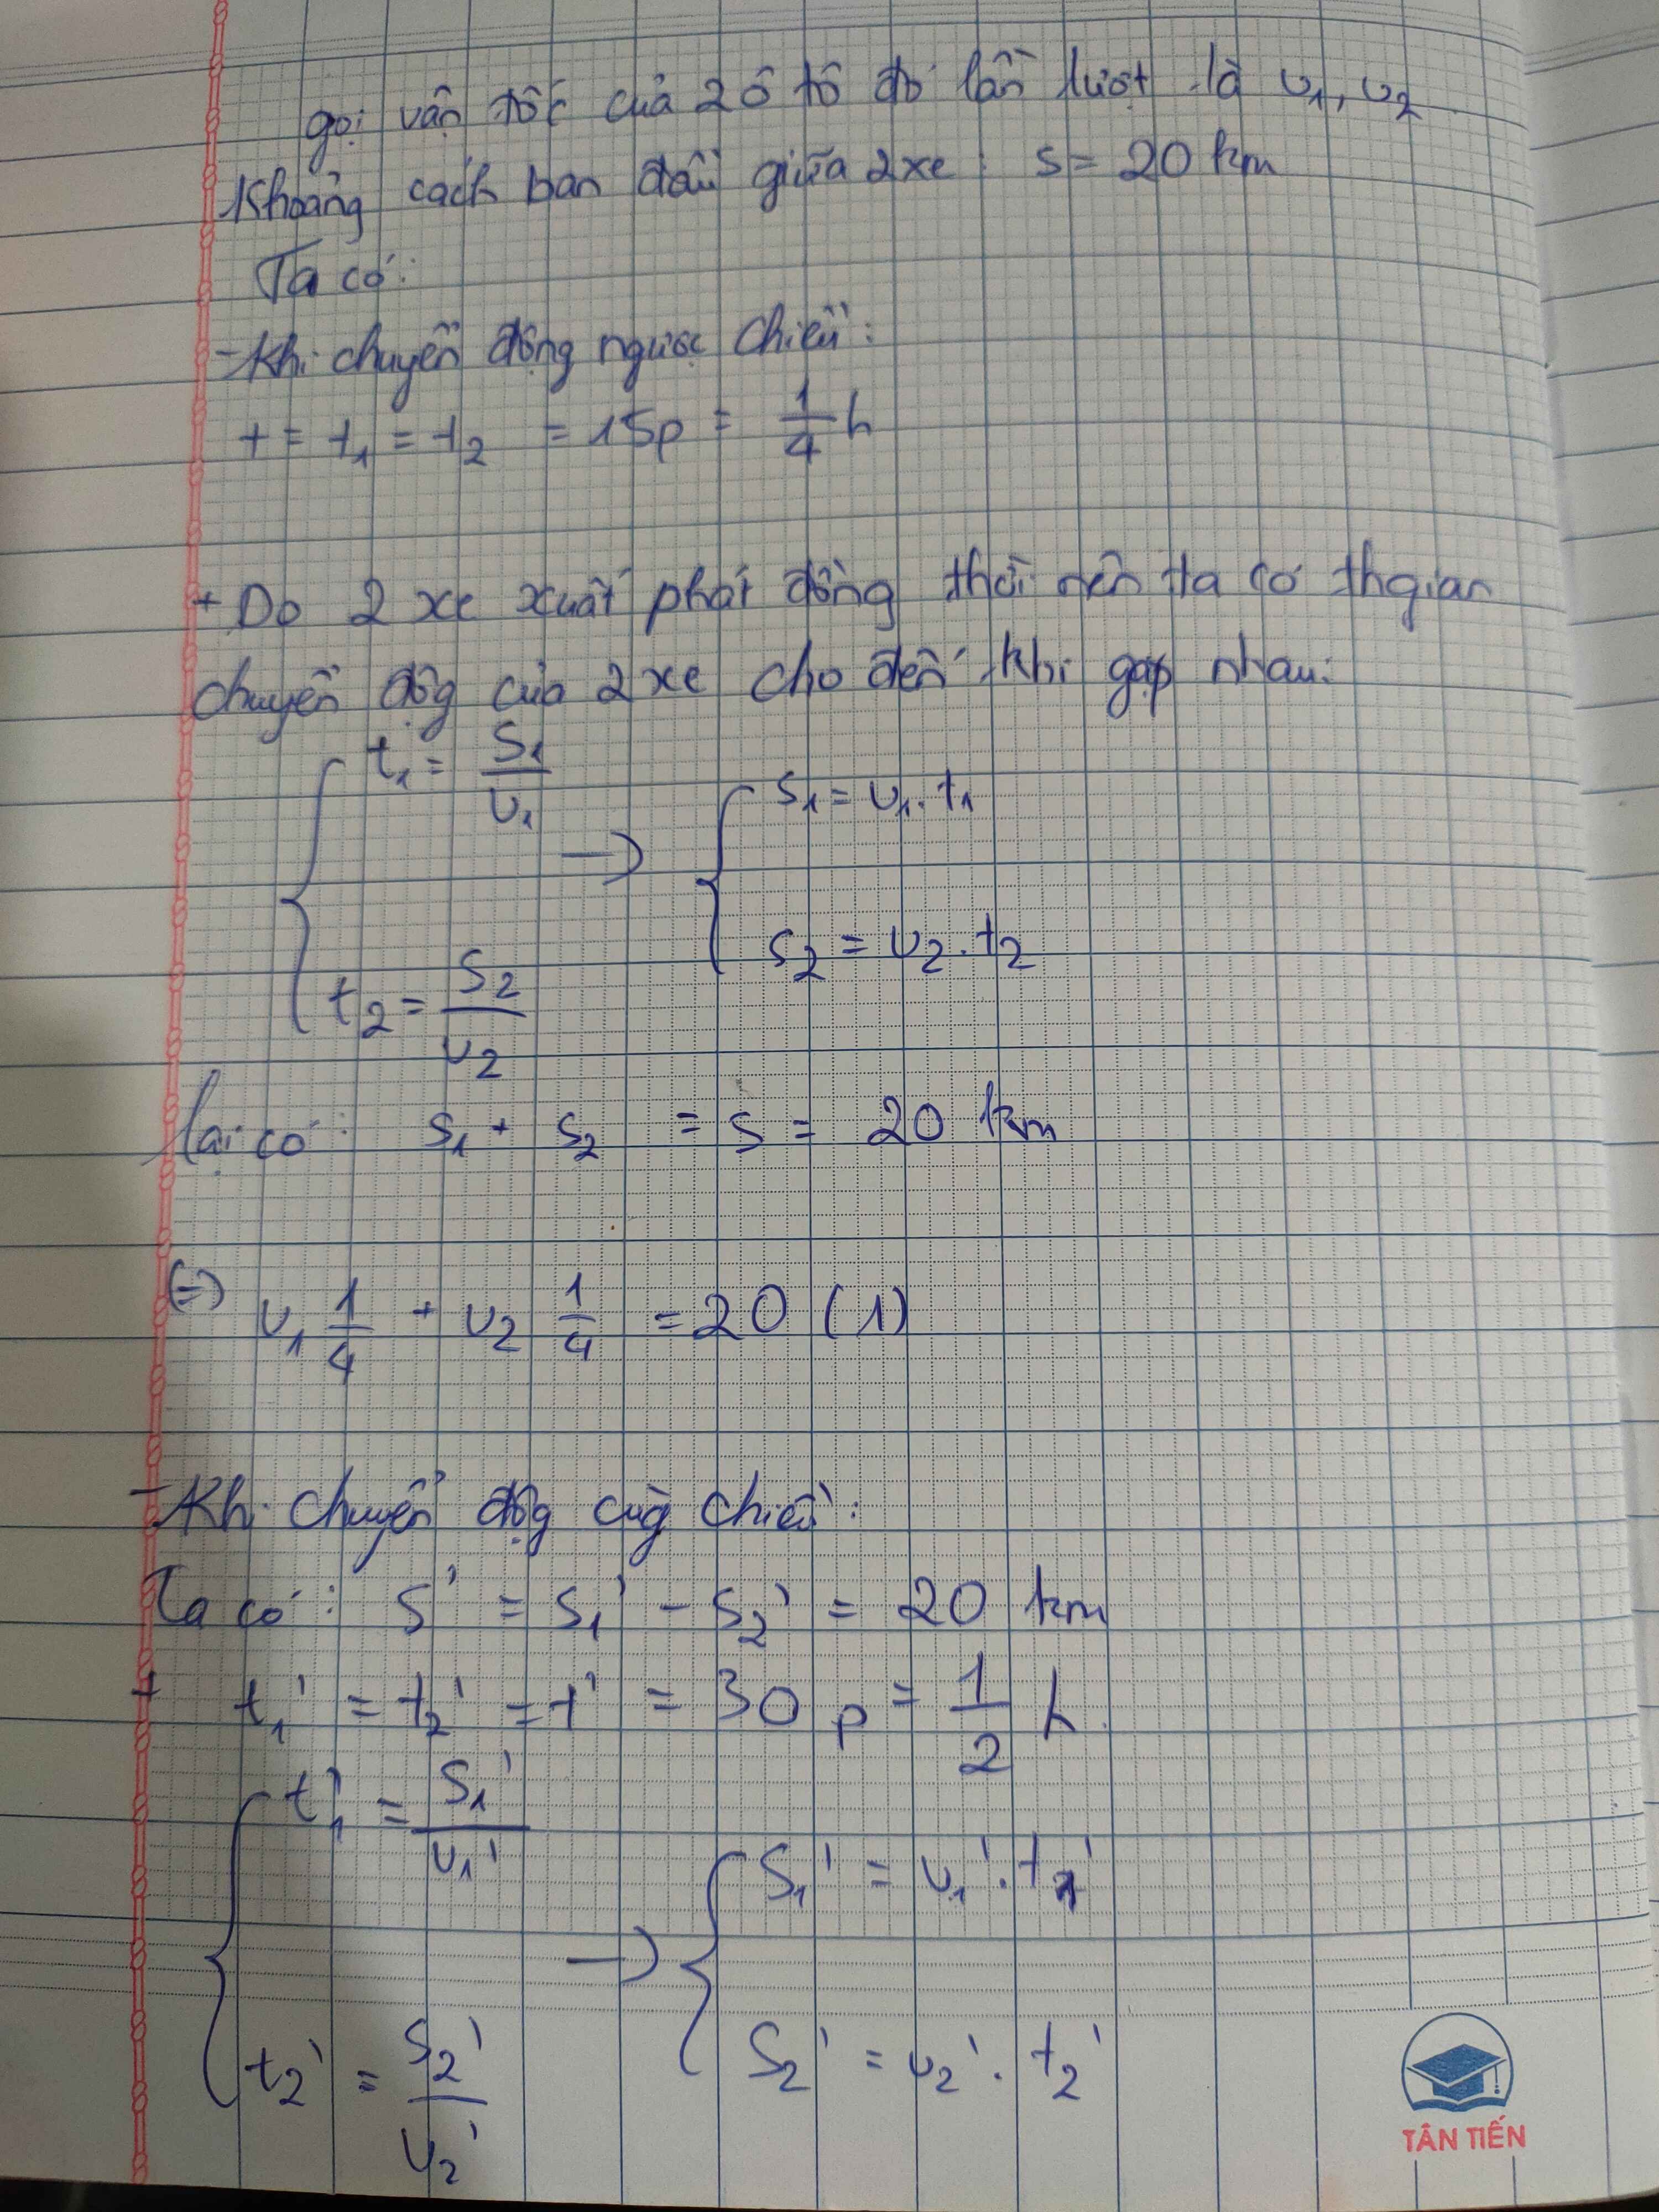 gọi vận tốc của 2 ô tô đó lần lượt là v₁, v₂
Khoảng cách ban đầu giữa 2 xe : s = 20 km
Ta có:
- Khi chuyển động ngược chiều:
t = t₁ = t₂ = 15p = 1/4 h
+ Do 2 xe xuất phát đồng thời nên ta có thgian
chuyển độg của 2 xe cho đến khi gặp nhau:
{ t₁ = S₁/v₁ → { s₁ = v₁. t₁
t₂ = S₂/v₂ s₂ = v₂. t₂
lại có : s₁ + s₂ = s = 20 km
(=) v₁ 1/4 + v₂ 1/4 = 20 (1)
- Khi chuyển độg cùg chiều:
Ta có : s' = s₁' - s₂' = 20 km
+ t₁' = t₂' = t' = 30 p = 1/2 h.
{ t₁' = S₁'/v₁' → { S₁' = v₁'. t₁'
t₂' = S₂'/v₂' S₂' = v₂'. t₂'
TÂN TIẾN